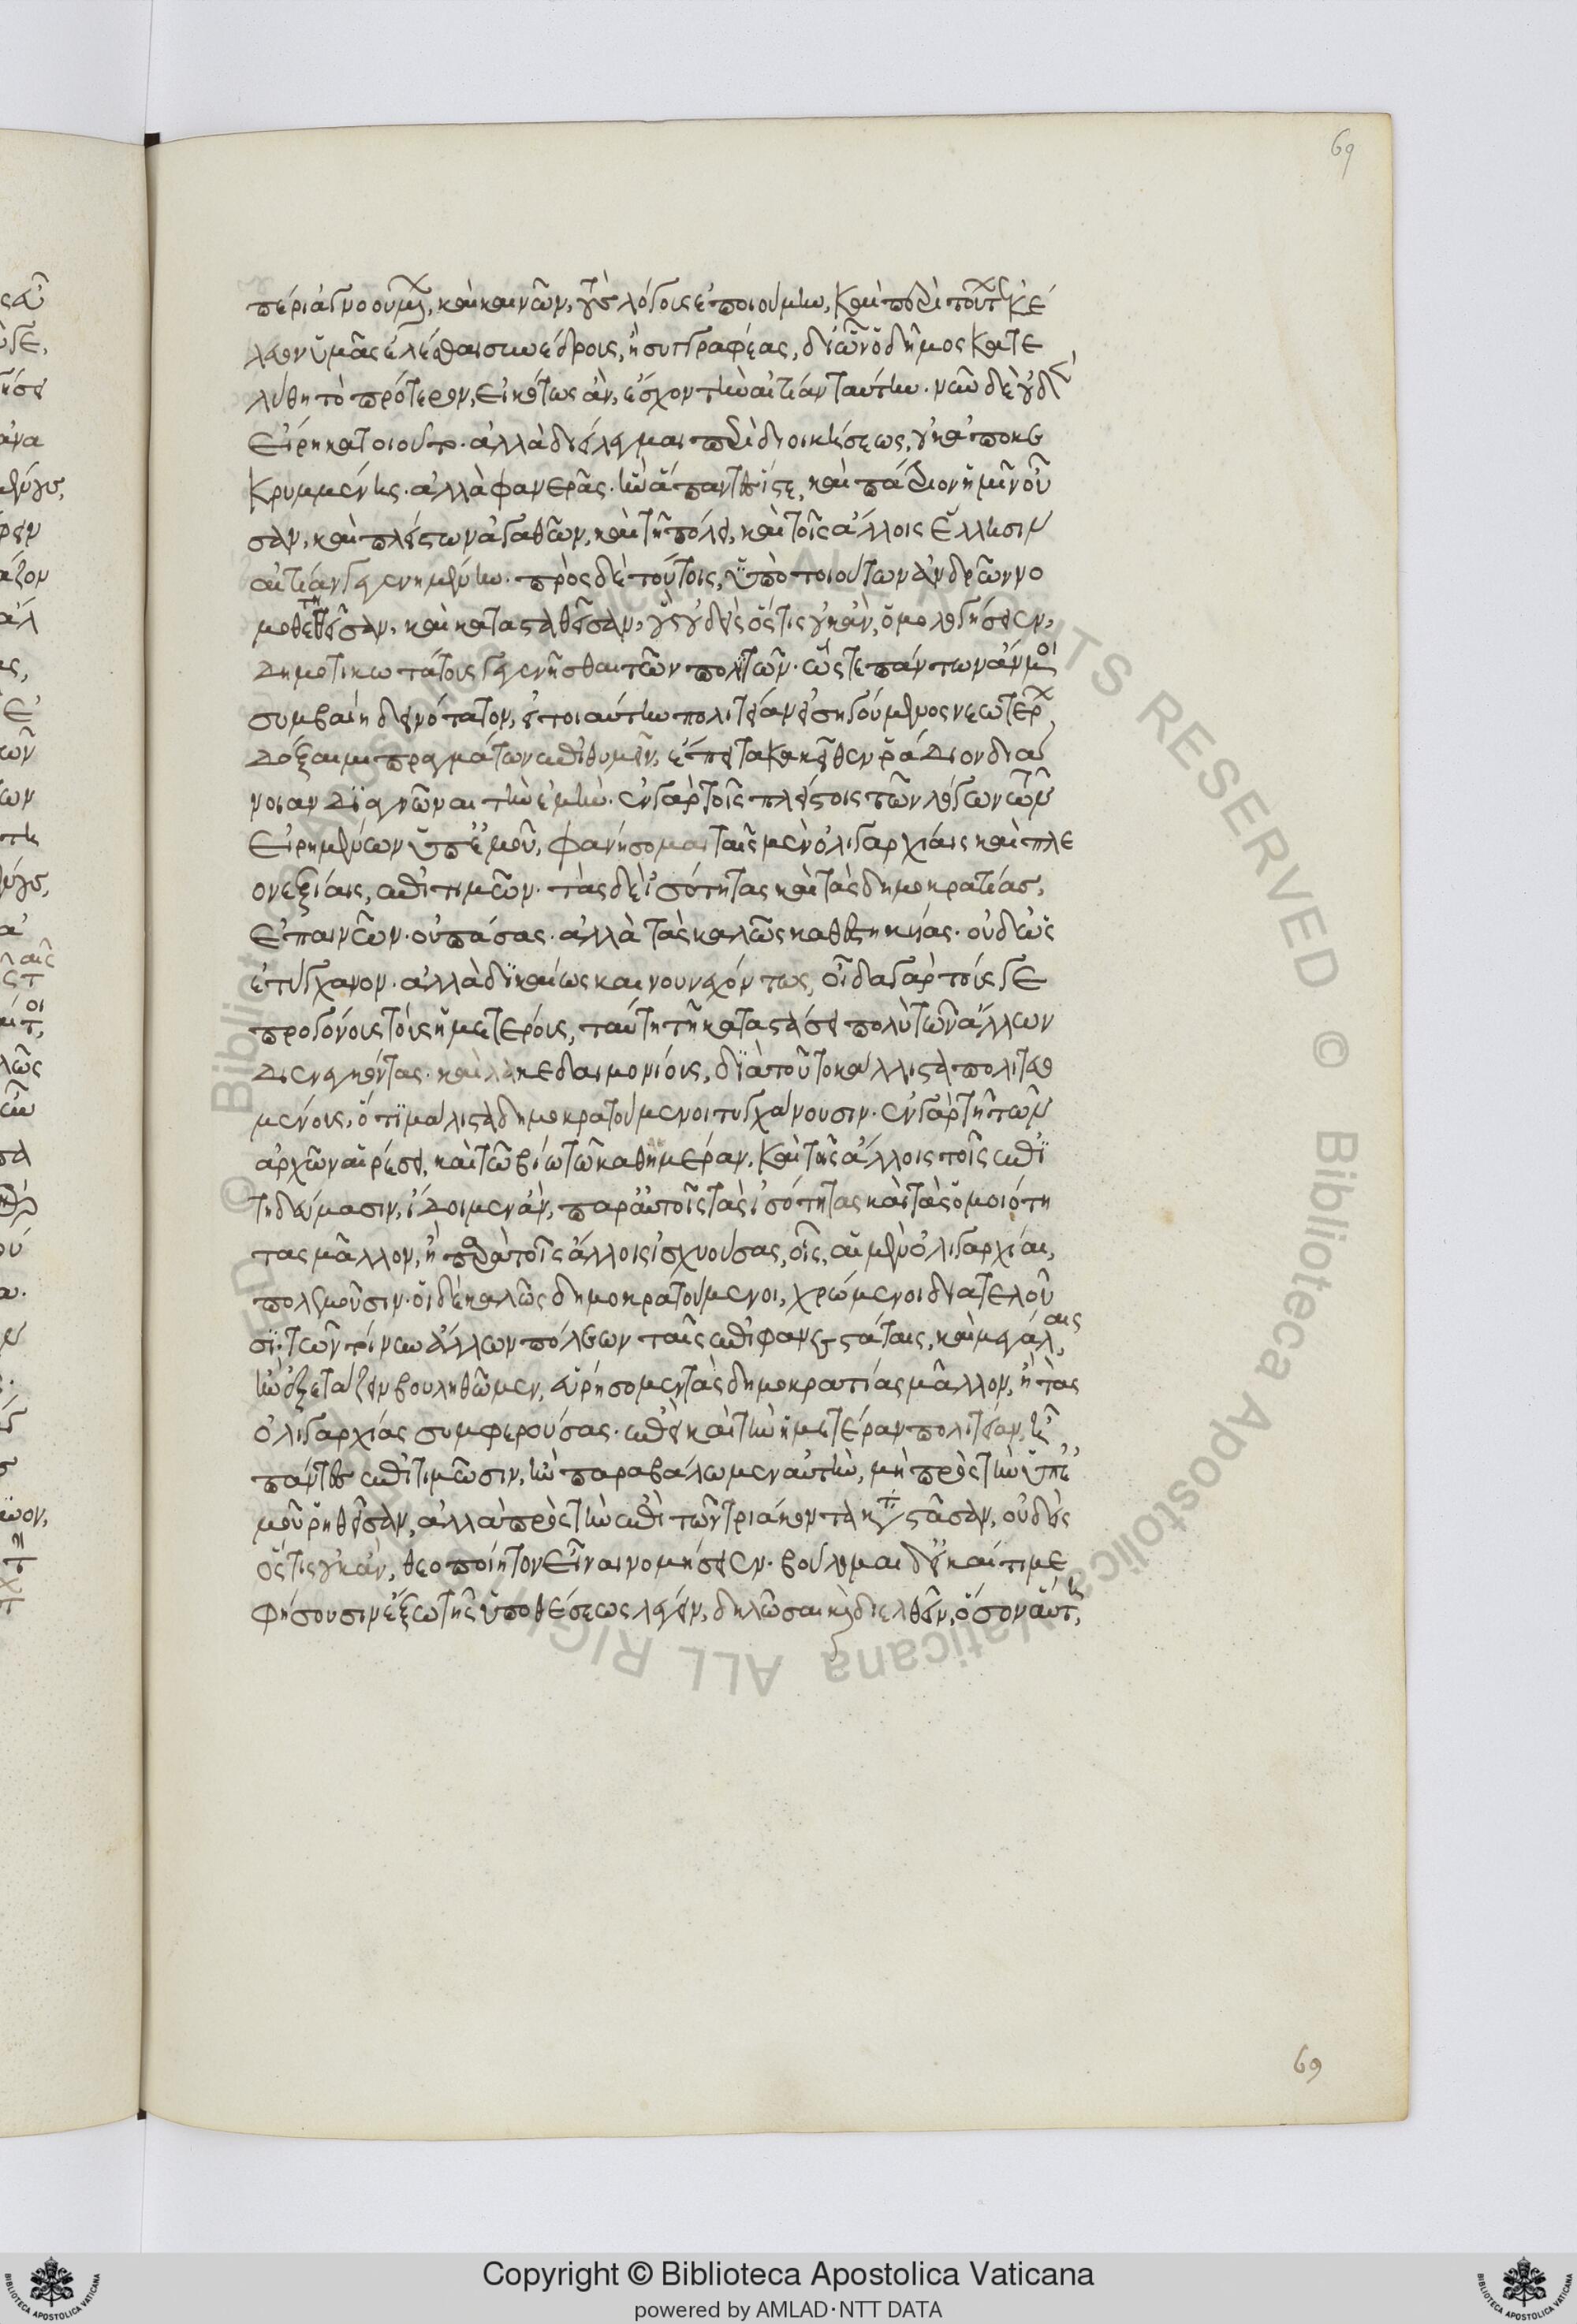 69
περὶ ἀγνοουμένων, καὶ καινῶν, τοὺς λόγους ἐποιούμην, καὶ περὶ τούτων ἐκέ
λευον ὑμᾶς ἑλέσθαι συνέδρους, ἢ συγγραφέας, δι' ὧν ὁ δῆμος κατε
λύθη τὸ πρότερον, εἰκότως ἂν, ἔσχον τὴν αἰτίαν ταύτην. νῦν δὲ οὐδὲν
εἴρηκα τοιοῦτον. ἀλλὰ διείλεγμαι περὶ διοικήσεως, οὐκ ἀποκε
κρυμμένης. ἀλλὰ φανερᾶς. ἣν ἅπαντες ἴστε, καὶ πάτριον ἡμῖν οὖ
σαν, καὶ πλείστων ἀγαθῶν, καὶ τῇ πόλει, καὶ τοῖς ἄλλοις ἕλλησιν
αἰτίαν γεγενημένην. πρὸς δὲ τούτοις, ὑπὸ τοιούτων ἀνδρῶν νο
μοθετηθεῖσαν, καὶ κατασταθεῖσαν, οὓς οὐδεὶς ὅστις οὐκ ἂν, ὁμολογήσειεν,
δημοτικωτάτους γεγενῆσθαι τῶν πολιτῶν. ὥστε πάντων ἄν μοι
συμβαίη δεινότατον, εἰ τοιαύτην πολιτείαν εἰσηγούμενος νεωτέρων
δόξαιμι πραγμάτων ἐπιθυμεῖν, ἔπειτα κἀκεῖθεν ῥάδιον διά
νοιαν διαγνῶναι τὴν ἐμήν. ἐν γὰρ τοῖς πλείστοις τῶν λόγων τῶν
εἰρημένων ὑπ' ἐμοῦ, φανήσομαι ταῖς μὲν ὀλιγαρχίαις καὶ πλε
ονεξίαις, ἐπιτιμῶν. τὰς δὲ ἰσότητας καὶ τὰς δημοκρατίας,
ἐπαινῶν. οὐ πάσας. ἀλλὰ τὰς καλῶς καθεστηκυίας. οὐδ' ὡς
ἐτύγχανον. ἀλλὰ δικαίως καὶ νουνεχόντως, οἶδα γὰρ τούς γε
προγόνους τοὺς ἡμετέρους, ταύτῃ τῇ καταστάσει πολὺ τῶν ἄλλων
διενεγκόντας. καὶ λακεδαιμονίους, διὰ τοῦτο κάλλιστα πολιτευο
μένους, ὅτι μάλιστα δημοκρατούμενοι τυγχάνουσιν. ἐν γὰρ τῇ τῶν
ἀρχῶν αἱρέσει, καὶ τῷ βίῳ τῷ καθ' ἡμέραν, καὶ τοῖς ἄλλοις τοῖς ἐπι
τηδεύμασιν, ἴδοιμεν ἂν, παρ' αὐτοῖς τὰς ἰσότητας καὶ τὰς ὁμοιότη
τας μᾶλλον, ἢ παρὰ τοῖς ἄλλοις ἰσχυούσας, οἷς, αἱ μὲν ὀλιγαρχίαι,
πολεμοῦσιν. οἱ δὲ καλῶς δημοκρατούμενοι, χρώμενοι διατελοῦ
σι. τῶν τοίνυν ἄλλων πόλεων ταῖς ἐπιφανεστάταις, καὶ μεγάλαις
ἢν ἐξετάζειν βουληθῶμεν, εὑρήσομεν τὰς δημοκρατίας μᾶλλον, ἢ τὰς
ὀλιγαρχίας συμφερούσας. ἐπεὶ καὶ τὴν ἡμετέραν πολιτείαν, ᾗ
πάντες ἐπιτιμῶσιν, ἢν παραβάλωμεν αὐτὴν, μὴ πρὸς τὴν ὑπ' ἐ
μοῦ ῥηθεῖσαν, ἀλλὰ πρὸς τὴν ἐπὶ τῶν τριάκοντα καταστᾶσαν, οὐδεὶς
ὅστις οὐκ ἂν, θεοποίητον εἶναι νομήσειεν. βούλομαι δ' εἰ καί τι με
φήσουσιν ἔξω τῆς ὑποθέσεως λέγειν, δηλῶσαι καὶ διελθεῖν, ὅσον αὕτη,
69
Copyright © Biblioteca Apostolica Vaticana
powered by AMLAD·NTT DATA